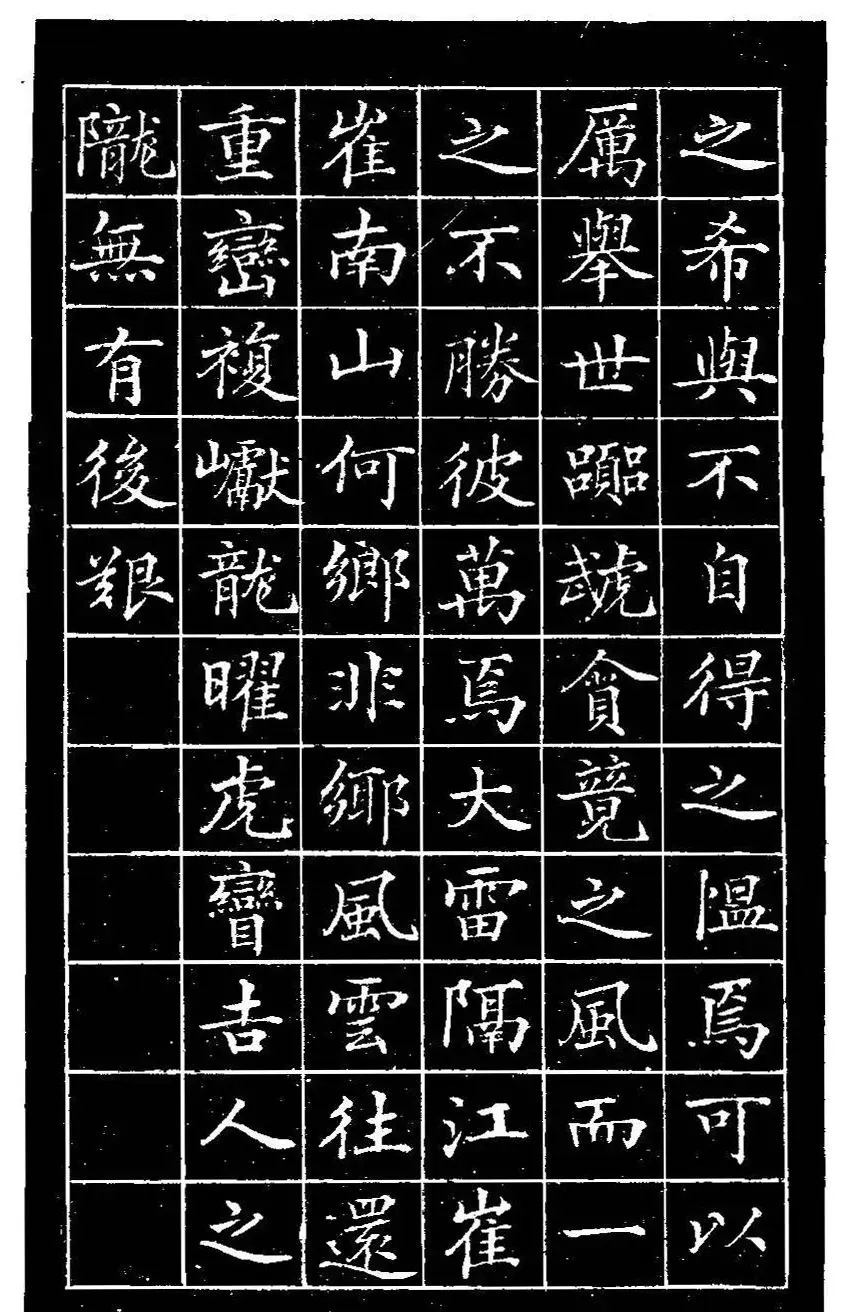 之希與不自得之愠焉可以
厲舉世囂虣貪競之風而一
之不勝彼萬焉大雷隔江崔
崔南山何鄉非鄉風雲往還
重巒複巘龍曜虎矕吉人之
隴無有後艱